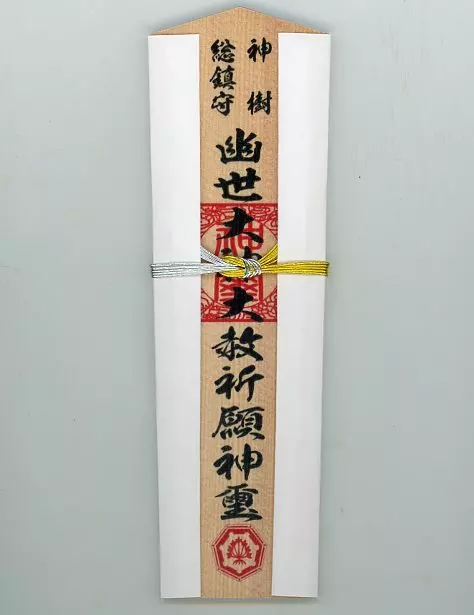 神樹
総鎮守
幽世大神大教祈願神璽